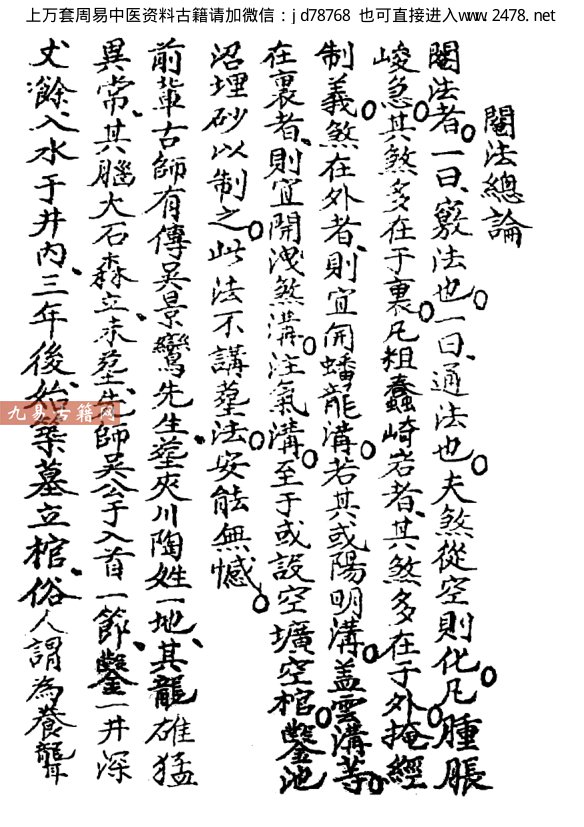 上万套周易中医资料古籍请加微信：jd78768 也可直接进入www.2478.net
閣法總論
閣法者、一曰竅法也。一曰、通法也。夫煞從空則化。凡腫脹
峻急。其煞多在于裏。凡粗蠢崎岩者、其煞多在于外。掩經
制義。煞在外者、則宜開蟠龍溝。若其或陽明溝。盖雲溝等。
在裏者、則宜開洩煞溝。注氣溝。至于或設空壙空棺。鑿池
沼埋砂以制之。此法不講塟法。安能無憾。
前輩古師有傳吳景鸞先生塟夾川陶姓一地、其龍雄猛
異常、其腦大石森立、未塟先師吳公于入首一節、鑿一井深
丈餘、入水于井内、三年後、始築墓立棺、俗人謂為養龍
九易古籍网